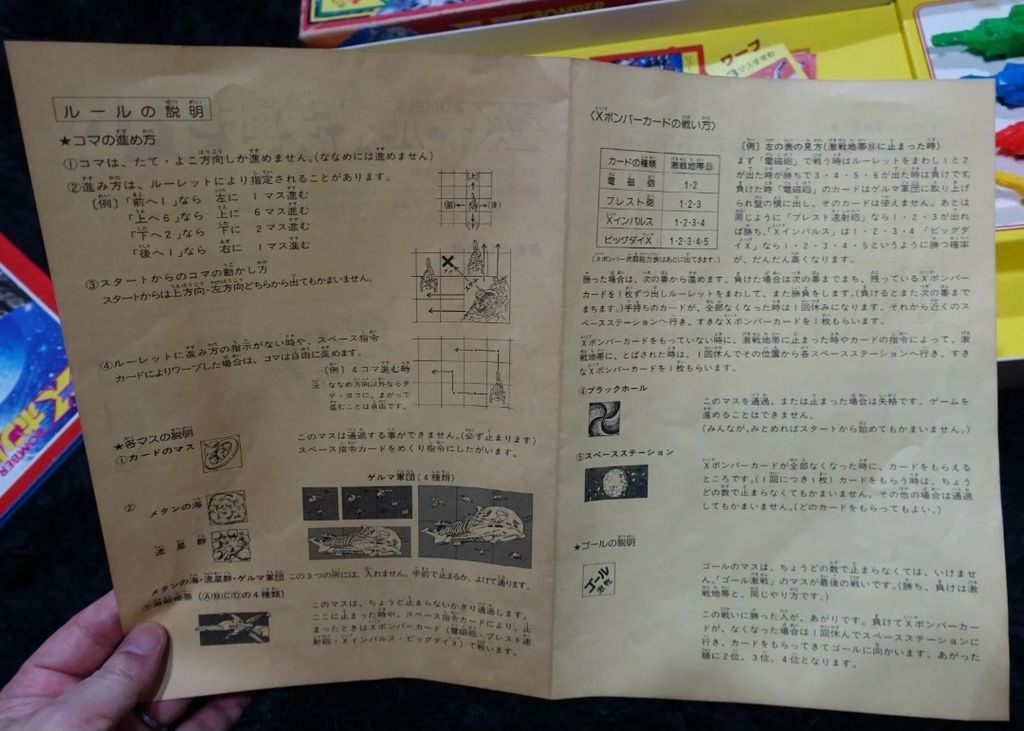 ルールの説明
★コマの進め方
①コマは、たて・よこ方向しか進めません。(ななめには進めません)
②進み方は、ルーレットにより指定されることがあります。
〔例〕「前へ1」なら 左に 1マス進む
「上へ6」なら 上に 6マス進む
「下へ2」なら 下に 2マス進む
「後へ1」なら 右に 1マス進む
(上)
(前)
(後)
(下)
③スタートからのコマの動かし方
スタートからは上方向・左方向どちらから出てもかまいません。
④ルーレットに進み方の指示がない時や、スペース指令
カードによりワープした場合は、コマは自由に進めます。
〔例〕4コマ進む時
注:ななめ方向以外ならタ
テ・ヨコに、まがって
進むことは自由です。
★各マスの説明
①カードのマス
このマスは通過する事ができません。(必ず止まります)
スペース指令カードをめくり指令にしたがいます。
ゲルマ軍団(4種類)
②
メタンの海
流星群
メタンの海・流星群・ゲルマ軍団 この3つの所には、入れません。手前で止まるか、よけて通ります。
③激戦地帯(ⒶⒷⒸⒹの4種類)
このマスは、ちょうど止まらないかぎり通過します。
ここに止まった時や、スペース指令カードにより、止
まったときはXボンバーカード(電磁砲・ブレスト速
射砲・Xインパルス・ビッグダイX)で戦います。
〈Xボンバーカードの戦い方〉
カードの種類 激戦地帯・Ⓑ
電磁砲 1・2
ブレスト砲 1・2・3
Xインパルス 1・2・3・4
ビッグダイX 1・2・3・4・5
(Xボンバー武器能力表はあとに出てきます。)
〔例〕左の表の見方(激戦地帯Ⓑに止まった時)
まず「電磁砲」で戦う時はルーレットをまわし1と2
が出た時が勝ちで3・4・5・6が出た時は負けです。
負けた時「電磁砲」のカードはゲルマ軍団に取り上げ
られ盤の横に出し、そのカードは使えません。あとは
同じように「ブレスト速射砲」なら1・2・3が出れ
ば勝ち、「Xインパルス」は1・2・3・4「ビッグダ
イX」なら1・2・3・4・5というように勝つ確率
が、だんだん高くなります。
勝った場合は、次の番から進めます。負けた場合は次の番までまち、残っているXボンバー
カードを1枚ずつ出しルーレットをまわして、また勝負をします。(負けるとまた次の番まで
まちます。)手持ちのカードが、全部なくなった時は1回休みになります。それから近くのス
ペースステーションへ行き、すきなXボンバーカードを1枚もらいます。
Xボンバーカードをもっていない時に、激戦地帯に止まった時やカードの指令によって、激
戦地帯に、とばされた時は、1回休んでその位置から各スペースステーションへ行き、すき
なXボンバーカードを1枚もらいます。
④ブラックホール
このマスを通過、または止まった場合は失格です。ゲームを
進めることはできません。
(みんなが、みとめればスタートから始めてもかまいません。)
⑤スペースステーション
Xボンバーカードが全部なくなった時に、カードをもらえる
ところです。(1回につき1枚)カードをもらう時は、ちょう
どの数で止まらなくてもかまいません。その他の場合は通過
してもかまいません。(どのカードをもらってもよい。)
★ゴールの説明
ゴール
激戦
ゴールのマスは、ちょうどの数で止まらなくては、いけませ
ん。「ゴール激戦」のマスが最後の戦いです。(勝ち、負けは激
戦地帯と、同じやり方です。)
この戦いに勝った人が、あがりです。負けてXボンバーカー
ドが、なくなった場合は1回休んでスペースステーションに
行き、カードをもらってきてゴールに向かいます。あがった
順に2位、3位、4位となります。
BOMBER
ワープ
3マスすすむ
BOMBER